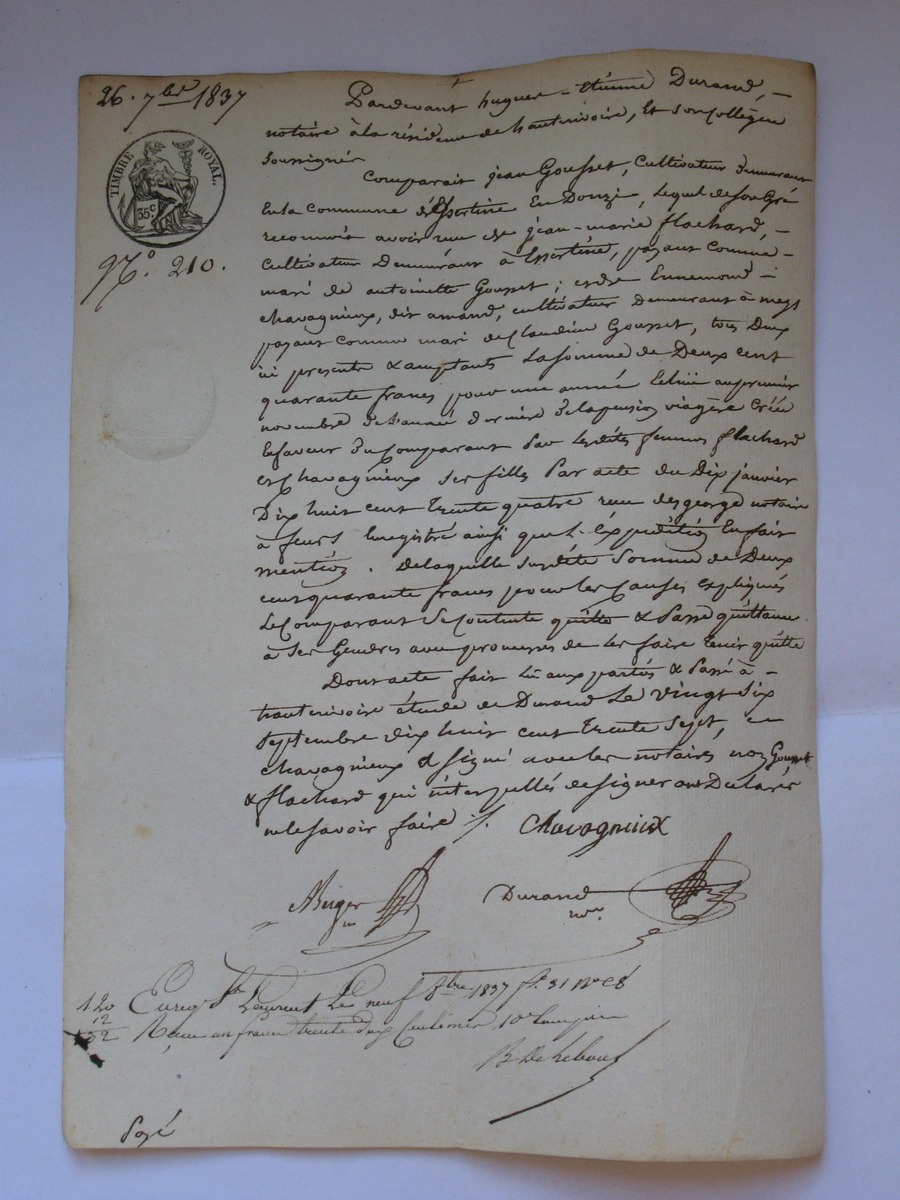 26. 7bre 1837
TIMBRE ROYAL.
35c
No 210.
Pardevant hugues-étienne Durand, -
notaire à la résidence de hauterivoire, Et son collègue
soussignés
Comparait jean Gousset, cultivateur demeurant
En la commune d'Essertine En Donzi, lequel de son Gré
reconnoit avoir reçu de jean-marie flachard, -
cultivateur Demeurant à Essertine, payant comme -
mari de antoinette Gousset; et de Ennemond -
chavagnieux, dit amand, cultivateur Demeurant à meys
payant comme mari de Claudine Gousset, tous Deux
ici presents & acceptants La somme de Deux cent
quarante francs pour une année Echue au premier
novembre de l'année dernière de la pension viagère créée
En faveur du Comparant Par lesdites femmes flachard
et Chavagnieux ses filles Par acte du Dix janvier
Dix huit cent trente quatre reçu desgeorge notaire
à feurs Enregistré ainsi que L'Expédition En fait
mention. De laquelle susdite Somme de Deux
cent quarante francs pour les Causes Expliquées
Le Comparant Se Contente quitte & Passe quittance
à Ses Gendres avec promesses de les faire tenir quitte
Dont acte fait Lu aux parties & Passé à -
hauterivoire étude de Durand Le vingt six
septembre Dix huit cent trente sept, Et
chavagnieux a signé avec les notaires non Gousset
& flachard qui interpellés de signer ont Déclarés
ne le savoir faire ./. Chavagnieux
Berger Durand
nre.
1.20 Enreg St Laurent Le neuf 8bre 1837 fo. 31 Vo C8
12 Reçu un franc trente deux Centimes 10e compris
1.32
Payé